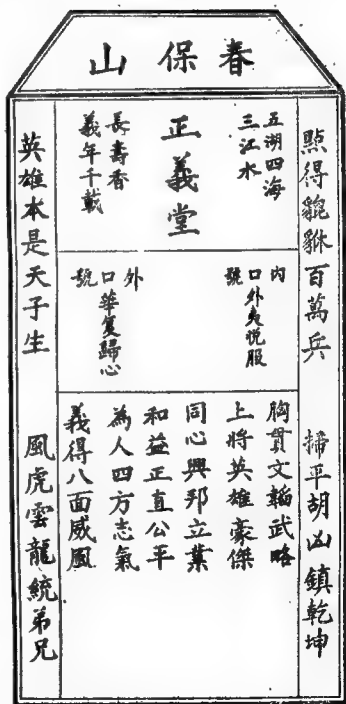 春保山
點得貔貅百萬兵 掃平胡凶鎮乾坤
五湖四海
三江水
正義堂
長壽香
義年千載
內口號
外夷悅服
外口號
華夏歸心
胸貫文韜武略
上將英雄豪傑
同心興邦立業
和益正直公平
為人四方志氣
義得八面威風
英雄本是天子生 風虎雲龍統弟兄